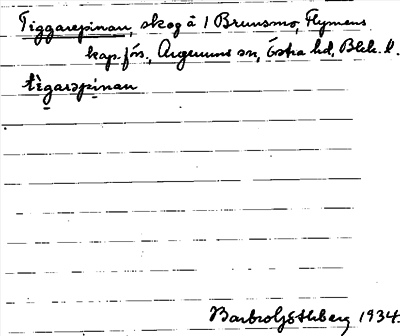 Tiggarepinan, skog å 1 Brunsmo, Flymens
kap. förs., Augerums sn, Östra hd, Blek. l.
tìgarəpinan
Barbro Göthberg 1934.